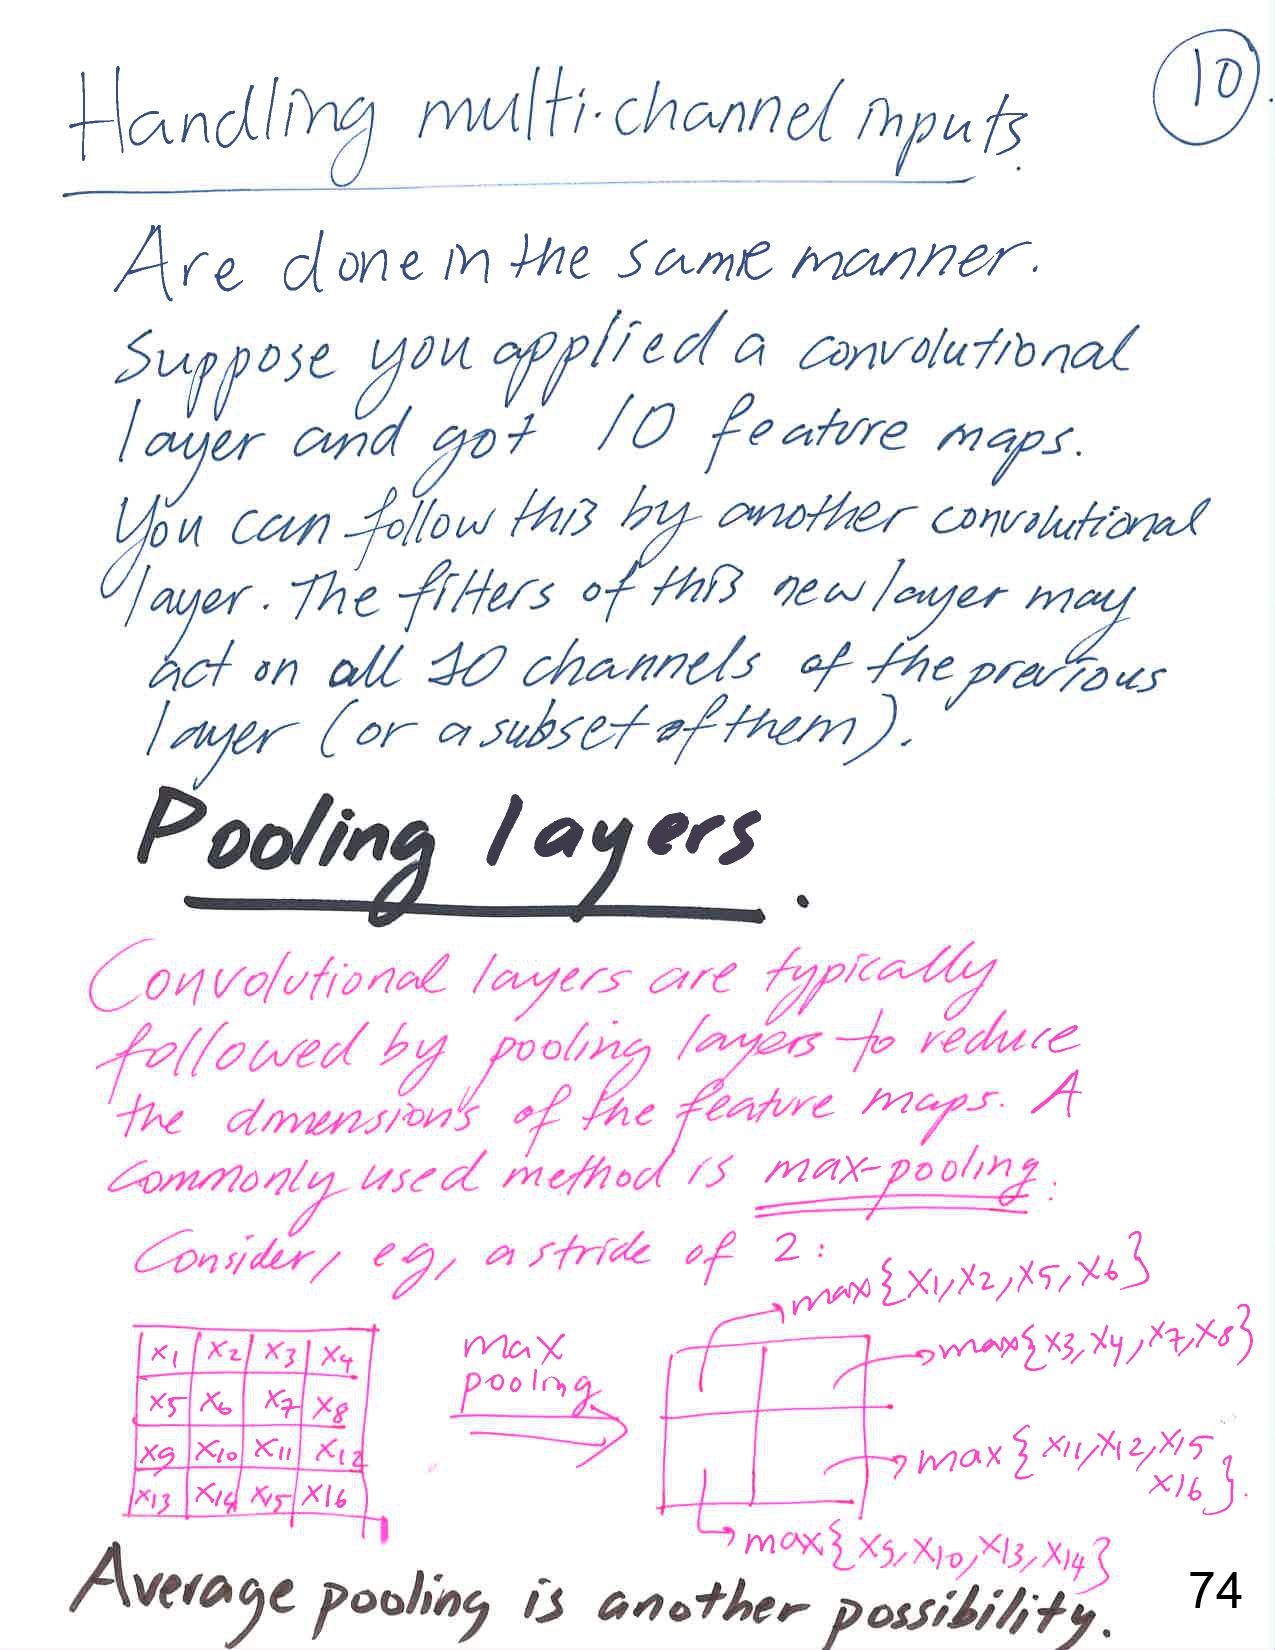 10
Handling multi-channel inputs.
Are done in the same manner.
Suppose you applied a convolutional
layer and got 10 feature maps.
You can follow this by another convolutional
layer. The filters of this new layer may
act on all 10 channels of the previous
layer (or a subset of them).
Pooling layers.
Convolutional layers are typically
followed by pooling layers to reduce
the dimensions of the feature maps. A
commonly used method is max-pooling.
Consider, eg, a stride of 2:
max{x1,x2,x5,x6}
x1 x2 x3 x4
x5 x6 x7 x8
x9 x10 x11 x12
x13 x14 x15 x16
max
pooling
max{x3,x4,x7,x8}
max{x11,x12,x15
x16}.
max{x9,x10,x13,x14}
Average pooling is another possibility.
74